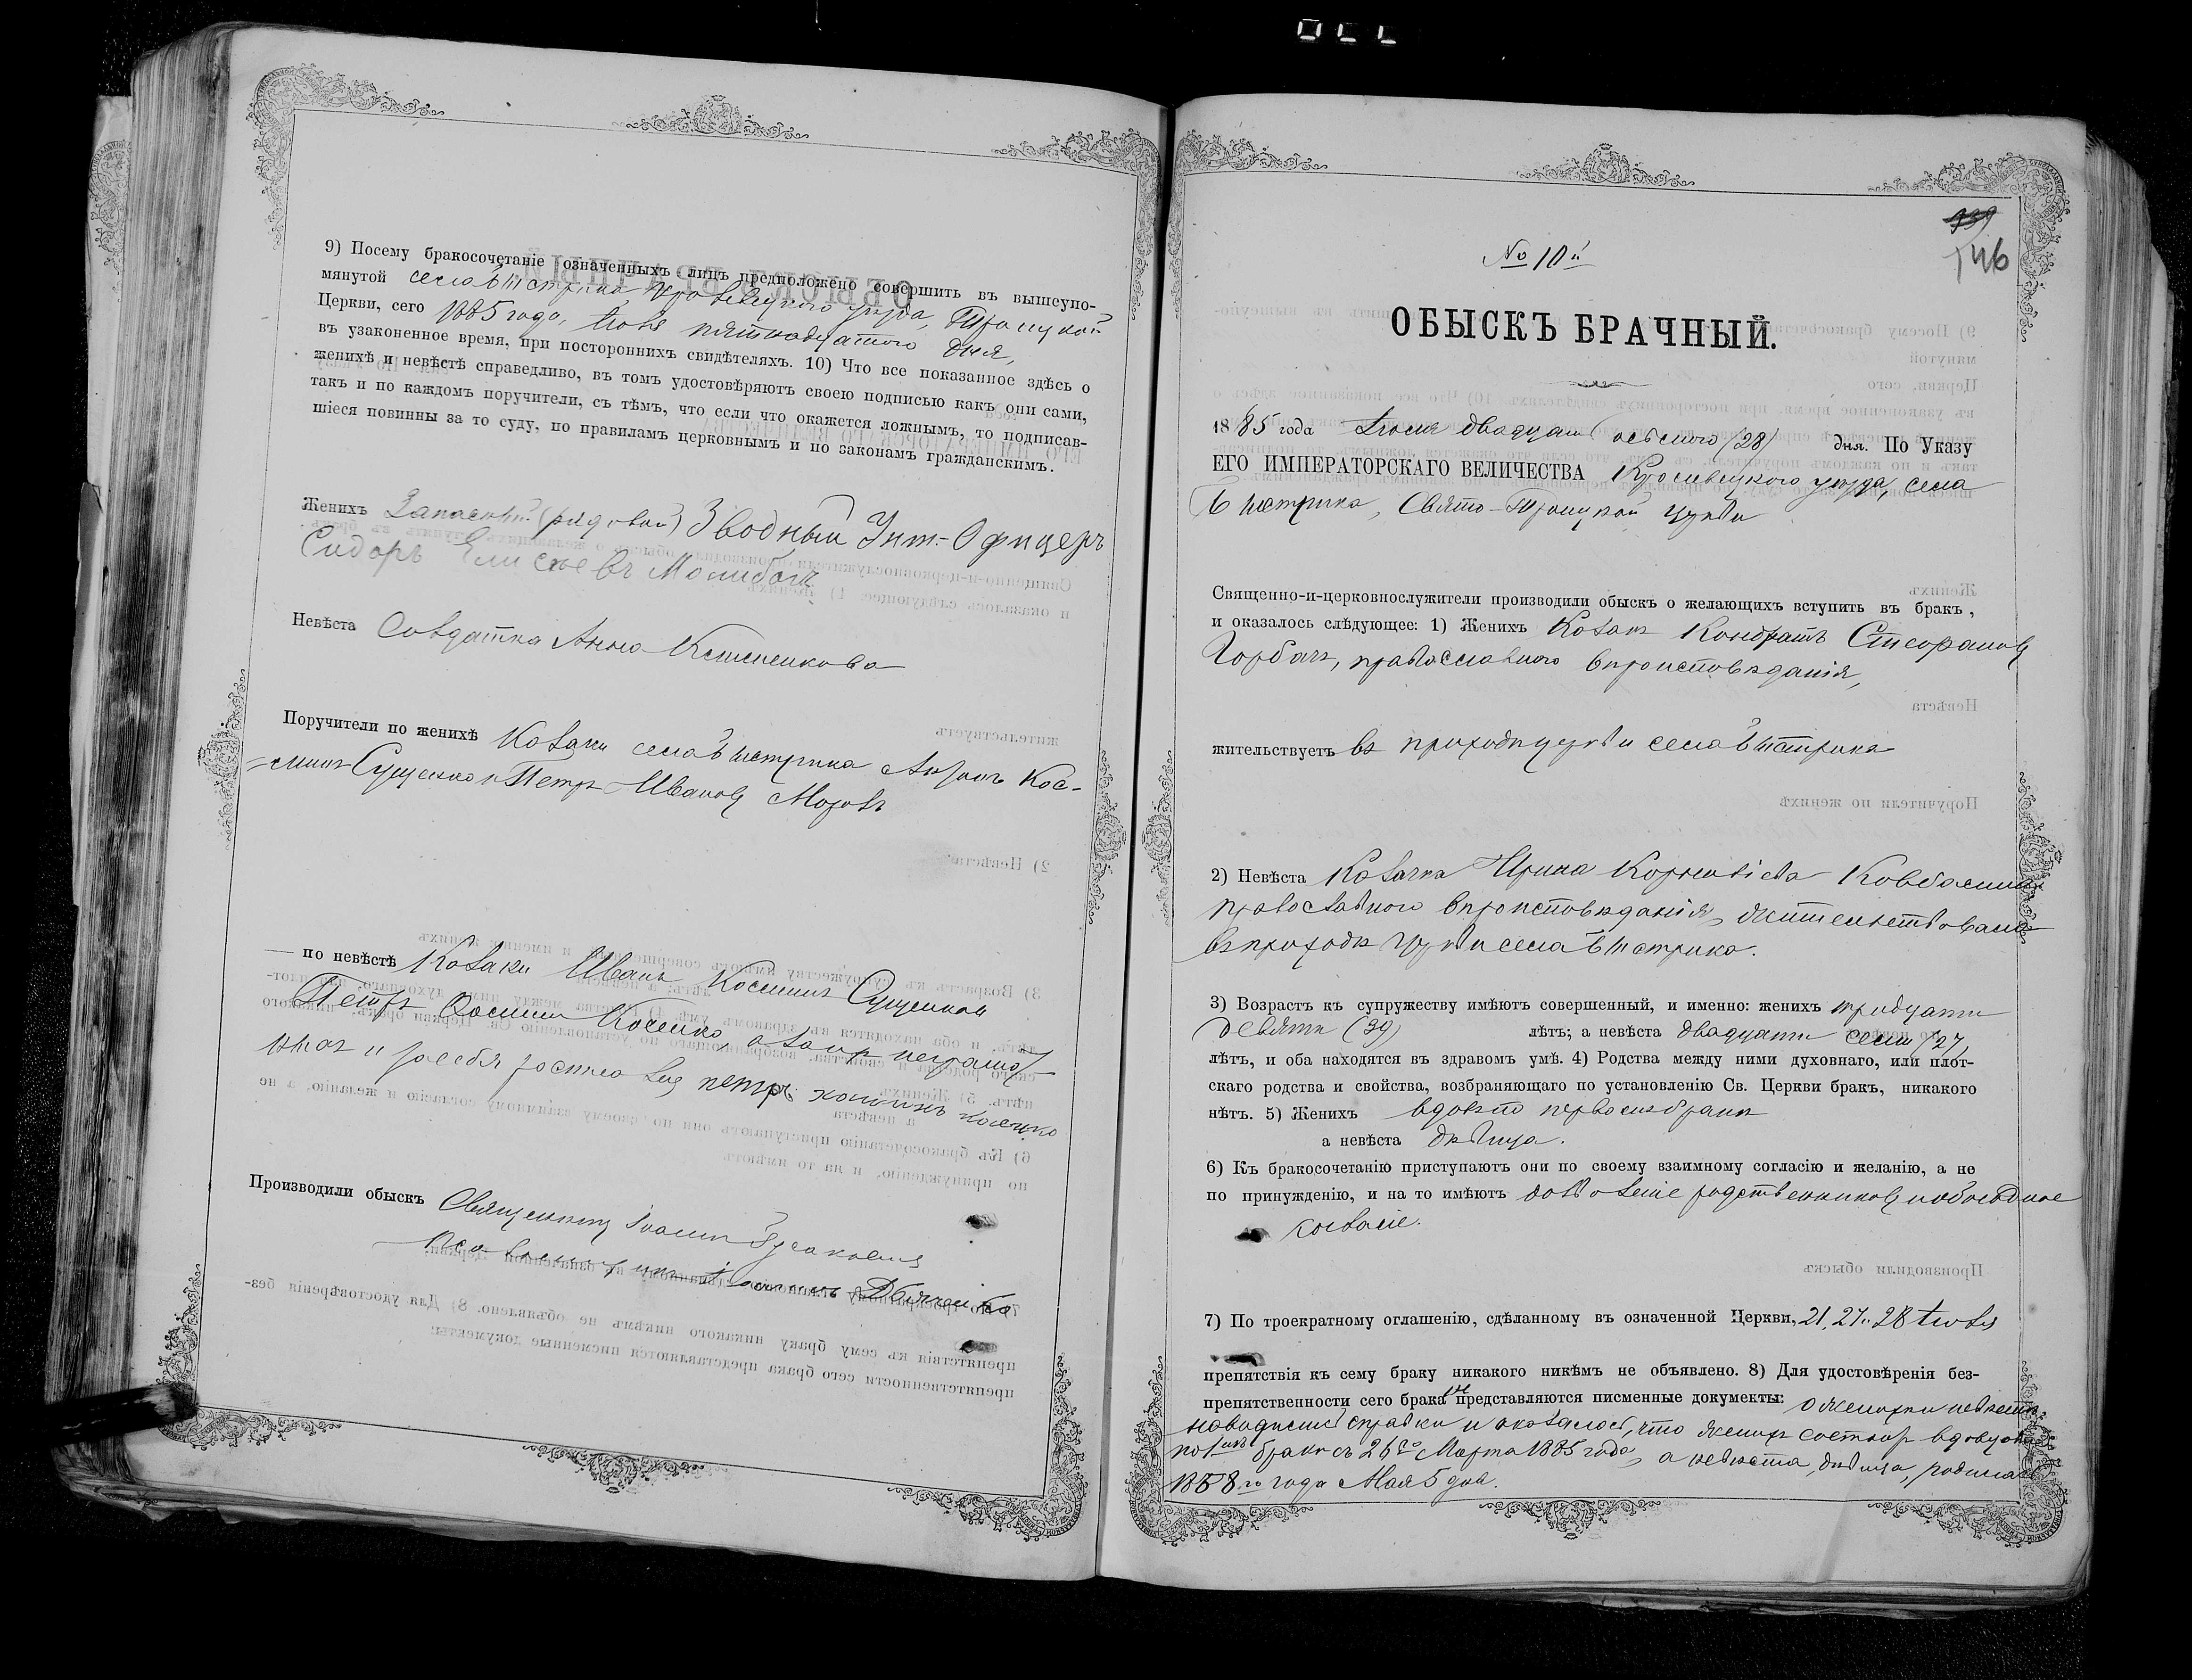 9) Посему бракосочетаніе означенныхъ лицъ предположено совершить въ вышеупо-
мянутой села Быстрика Кролевецкого уезда, Троицкой
Церкви, сего 1885 года, Іюня пятнадцатого дня,
въ узаконенное время, при постороннихъ свидѣтеляхъ. 10) Что все показанное здѣсь о
женихѣ и невѣстѣ справедливо, въ томъ удостовѣряютъ своею подписью какъ они сами,
такъ и по каждомъ поручители, съ тѣмъ, что если что окажется ложнымъ, то подписав-
шіеся повинны за то суду, по правиламъ церковнымъ и по законамъ гражданскимъ.
Женихъ Запасный (рядовой) Зводный Унт.-Офицеръ
Сидоръ Елисѣевъ
Невѣста Солдатка Анна
Поручители по женихѣ Козаки села Быстрика Антонъ Кос-
=минъ Сущенко и Петръ Ивановъ
— по невѣстѣ Козаки Иванъ Косминъ Сущенко и
Петръ Коченко, а за ихъ неграмот
Производили обыскъ Священникъ Іоаннъ
Псаломщикъ
№ 10й
739
146
ОБЫСКЪ БРАЧНЫЙ.
1885 года Іюля двадцать осьмого (28) дня. По Указу
ЕГО ИМПЕРАТОРСКАГО ВЕЛИЧЕСТВА Кролевецкого уезда, села
Быстрика, Свято-Троицкой церкви
Священно-и-церковнослужители производили обыскъ о желающихъ вступить въ бракъ,
и оказалось слѣдующее: 1) Женихъ Козакъ Кондратъ Стефановъ
Горбачъ, православного вѣроисповѣданія,
жительствуетъ въ приходѣ церкви села Быстрика
2) Невѣста Козачка Ирина Корнилієва
православного вѣроисповѣданія, жительствовала
въ приходѣ церкви села Быстрика.
3) Возрастъ къ супружеству имѣютъ совершенный, и именно: женихъ тридцати
девяти (39) лѣтъ; а невѣста двадцати семи (27)
лѣтъ, и оба находятся въ здравомъ умѣ. 4) Родства между ними духовнаго, или плот-
скаго родства и свойства, возбраняющаго по установленію Св. Церкви бракъ, никакого
нѣтъ. 5) Женихъ вдовъ по первомъ бракѣ
а невѣста дѣвица.
6) Къ бракосочетанію приступаютъ они по своему взаимному согласію и желанію, а не
по принужденію, и на то имѣютъ дозволеніе родственниковъ и обоюдное
согласіе.
7) По троекратному оглашенію, сдѣланному въ означенной Церкви, 21, 27 и 28 Іюля
препятствія къ сему браку никакого никѣмъ не объявлено. 8) Для удостовѣренія без-
препятственности сего брака не представляются писменные документы: о женихѣ и невѣстѣ
наводились справки и оказалось, что женихъ состоитъ вдовцомъ
по 1мъ бракѣ съ 26го Марта 1885 года, а невѣста, дѣвица, родилась
1858го года Мая 5 дня.